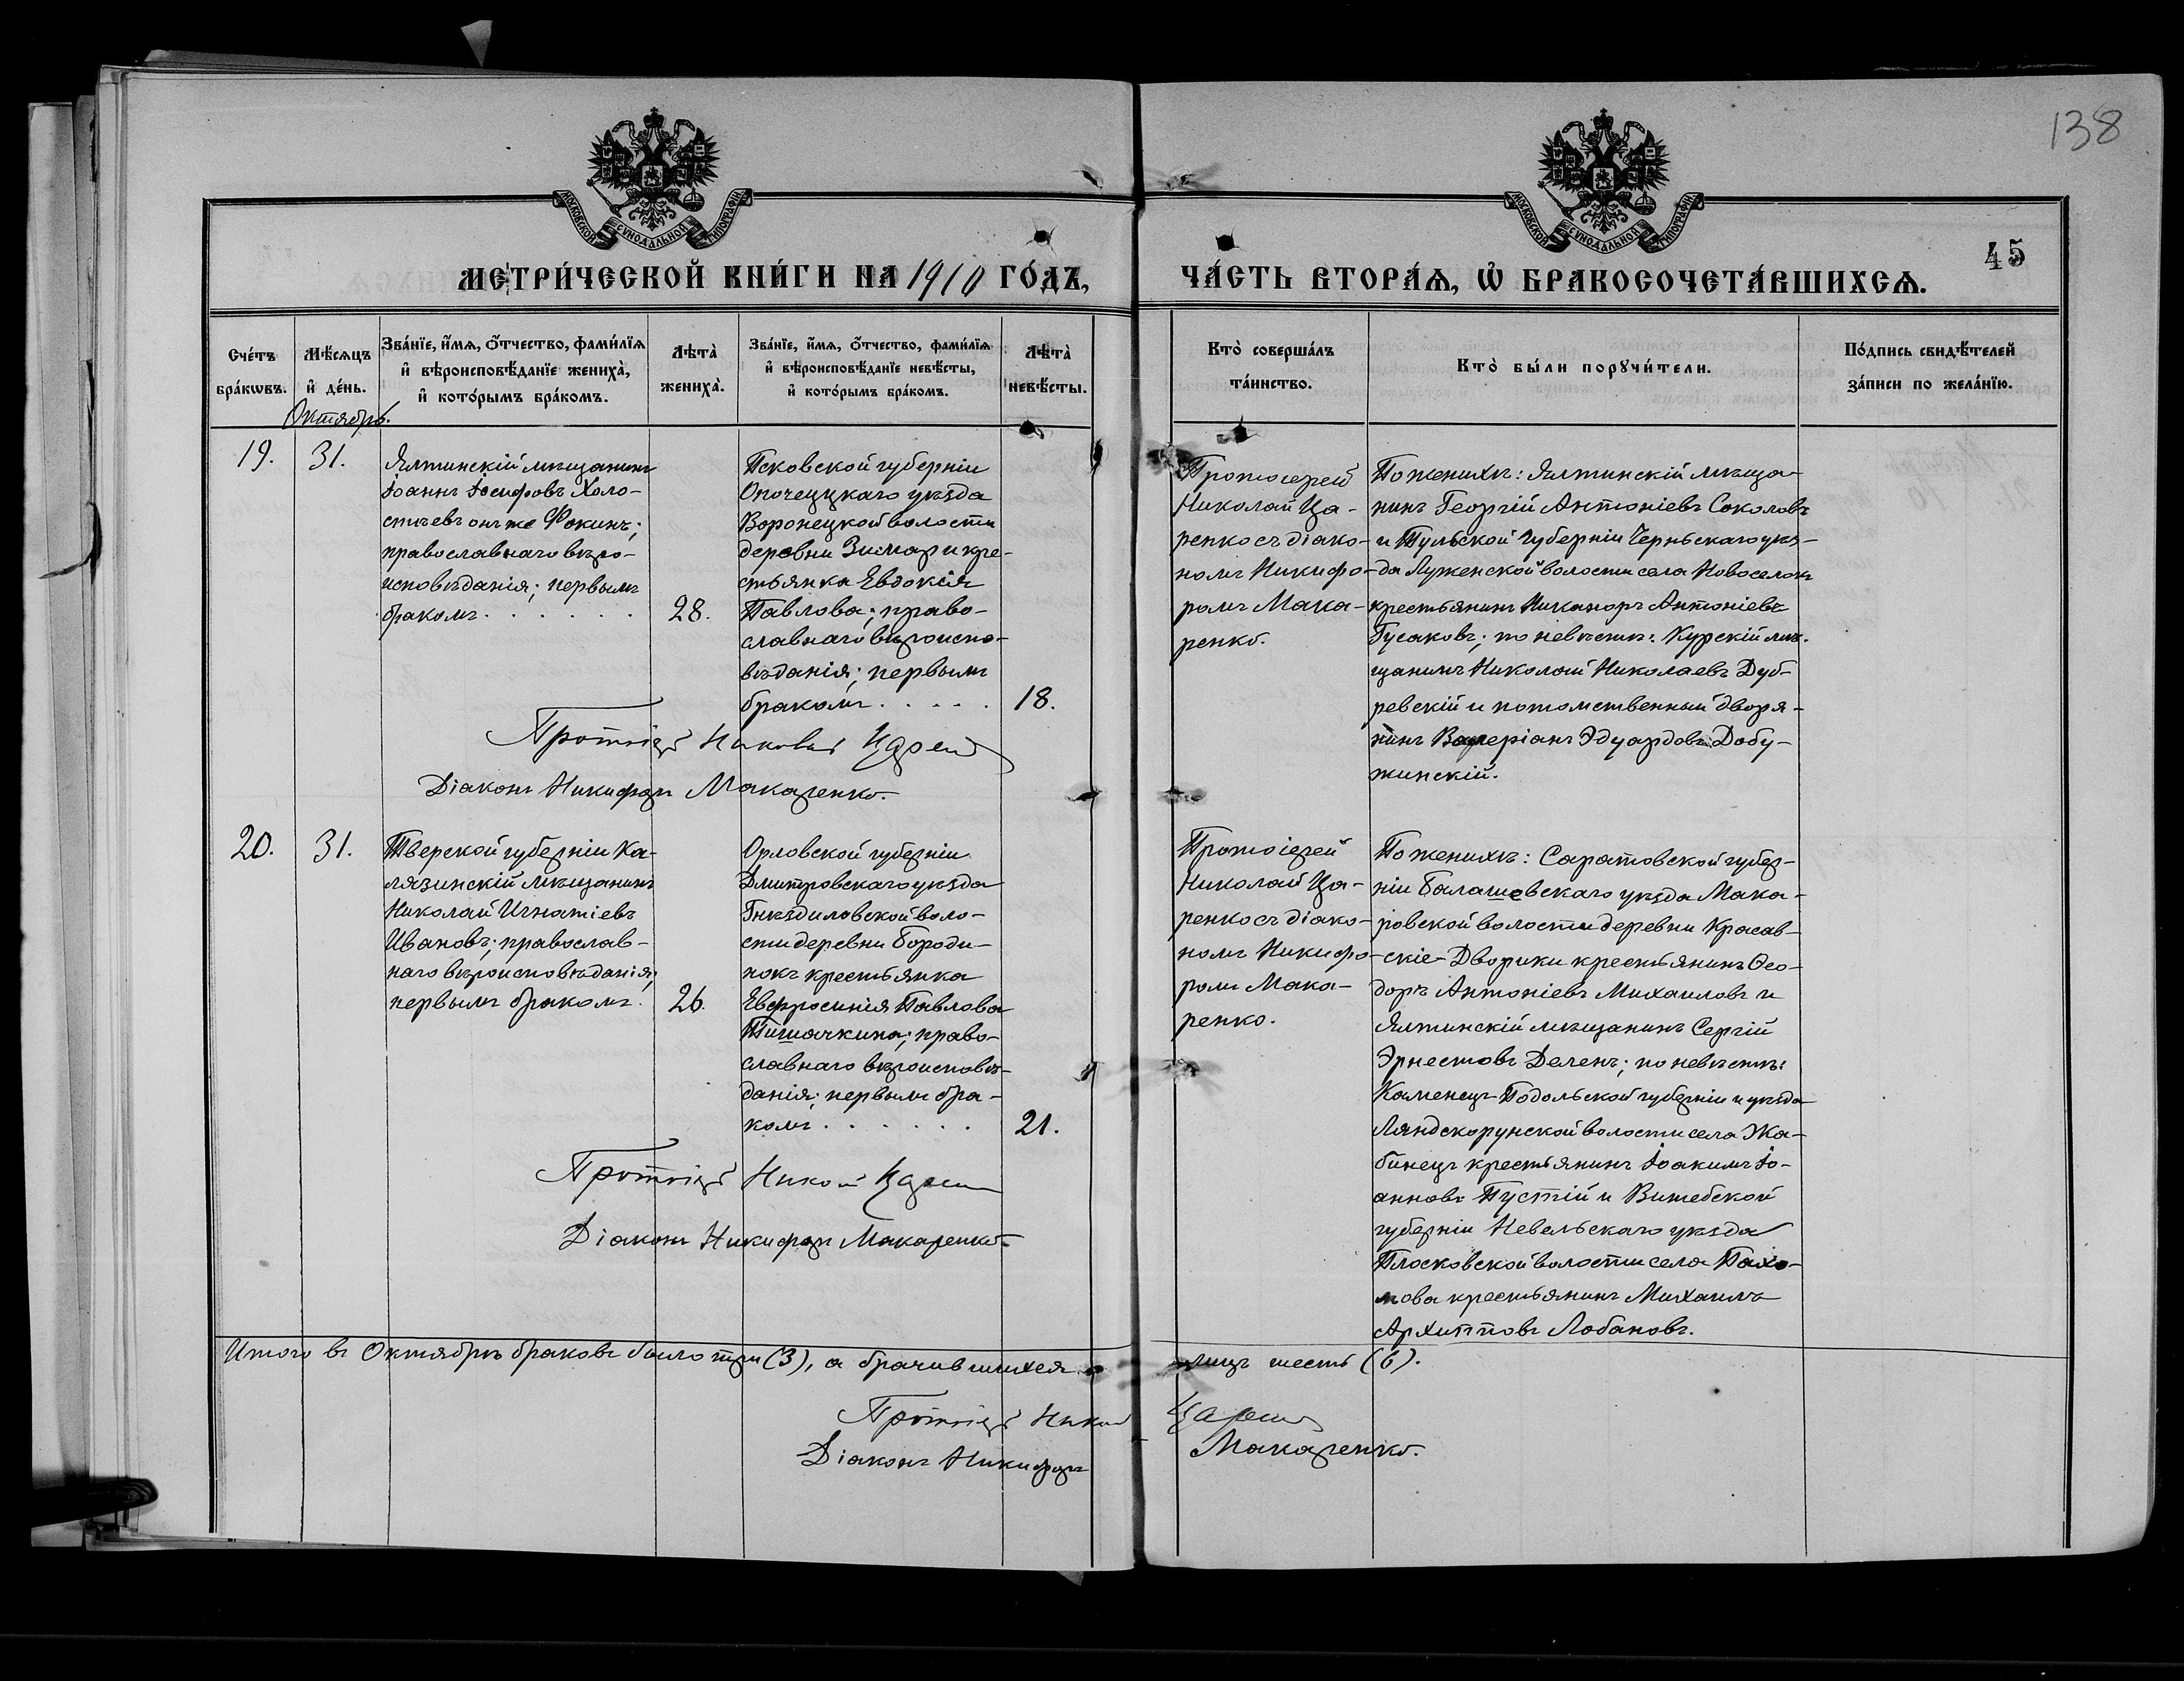 138
МОСКОВСКОЙ СѴНОДАЛЬНОЙ ТИПОГРАФІИ
МОСКОВСКОЙ СѴНОДАЛЬНОЙ ТИПОГРАФІИ
45
МЕТРИ́ЧЕСКОЙ КНИ́ГИ НА 1910 ГО́ДЪ,
ЧА́СТЬ ВТОРА́Ѧ, Ѡ҆ БРАКОСОЧЕТА́ВШИХСѦ.
Сче́тъ
бра́кѡвъ.
Мѣ́сѧцъ
и҆ де́нь.
Зва́нїе, и҆́мѧ, ѻ҆́тчество, фами́лїѧ
и҆ вѣроисповѣ́данїе жениха̀,
и҆ кото́рымъ бра́комъ.
Лѣта̀
жениха̀.
Зва́нїе, и҆́мѧ, ѻ҆́тчество, фами́лїѧ
и҆ вѣроисповѣ́данїе невѣ́сты,
и҆ кото́рымъ бра́комъ.
Лѣта̀
невѣ́сты.
Кто̀ соверша́лъ
та́инство.
Кто̀ бы́ли порꙋчи́тели.
По́дпись свидѣ́телей
за́писи по жела́нїю.
Октябрь.
19.
31.
Ялтинскій мѣщанинъ
Іоаннъ Іосифовъ Холо-
стичевъ онъ же Фокинъ;
православнаго вѣро-
исповѣданія; первымъ
бракомъ . . . . . .
28.
Псковской губерніи
Опочецкаго уѣзда
Воронецкой волости
деревни Зимари кре-
стьянка Евдокія
Павлова; право-
славнаго вѣроиспо-
вѣданія; первымъ
бракомъ . . . . .
18.
Протоіерей
Николай Ца-
ренко съ діако-
номъ Никифо-
ромъ Мака-
ренко.
По женихѣ: Ялтинскій мѣща-
нинъ Георгій Антоніевъ Соколовъ
и Тульской губерніи Чернскаго уѣз-
да Луженской волости села Новоселокъ
крестьянинъ Никаноръ Антоніевъ
Гусаковъ; по невѣстѣ: Курскій мѣ-
щанинъ Николай Николаевъ Дуб-
ревскій и потомственный дворя-
нинъ Валеріанъ Эдуардовъ Добу-
жинскій.
Протоіерей Николай Царенко
Діаконъ Никифоръ Макаренко.
20.
31.
Тверской губерніи Ка-
лязинскій мѣщанинъ
Николай Игнатіевъ
Ивановъ; православ-
наго вѣроисповѣданія;
первымъ бракомъ.
26.
Орловской губерніи
Дмитровскаго уѣзда
Гнѣздиловской воло-
сти деревни Бороди-
нокъ крестьянка
Евфросинія Павлова
Тишачкина; право-
славнаго вѣроисповѣ-
данія; первымъ бра-
комъ . . . . . .
21.
Протоіерей
Николай Ца-
ренко съ діако-
номъ Никифо-
ромъ Мака-
ренко.
По женихѣ: Саратовской губер-
ніи Балашевскаго уѣзда Мака-
ровской волости деревни Красав-
скіе-Дворики крестьянинъ Ѳео-
доръ Антоніевъ Михаиловъ и
Ялтинскій мѣщанинъ Сергій
Эрнестовъ Деленъ; по невѣстѣ:
Каменецъ-Подольской губерніи и уѣзда
Ляндскорунской волости села Жа-
бинецъ крестьянинъ Іоакимъ Іо-
анновъ Пустій и Витебской
губерніи Невельскаго уѣзда
Плосковской волости села Пахо-
мова крестьянинъ Михаилъ
Архипповъ Лобановъ.
Протоіерей Николай Царенко
Діаконъ Никифоръ Макаренко.
Итого въ Октябрѣ браковъ было три (3), а брачившихся лицъ шесть (6).
Протоіерей Николай Царенко
Діаконъ Никифоръ Макаренко.